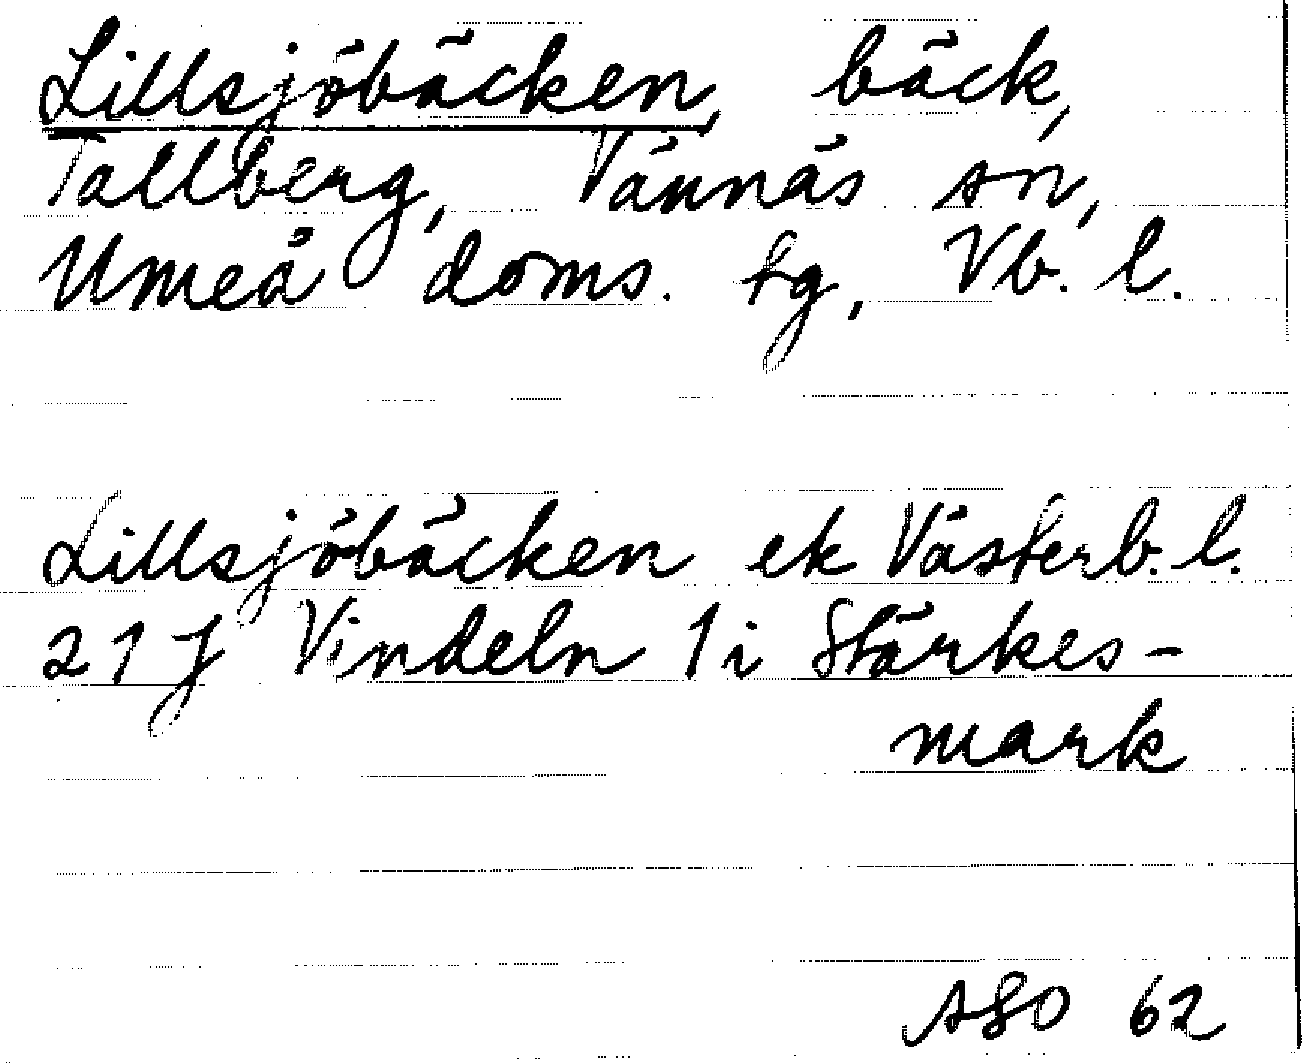 Lillsjöbäcken, bäck,
Tallberg, Vännäs sn,
Umeå doms. tg, Vb. l.
Lillsjöbäcken ek Västerb. l.
21 J Vindeln 1 i Stärkes-
mark
ASO 62